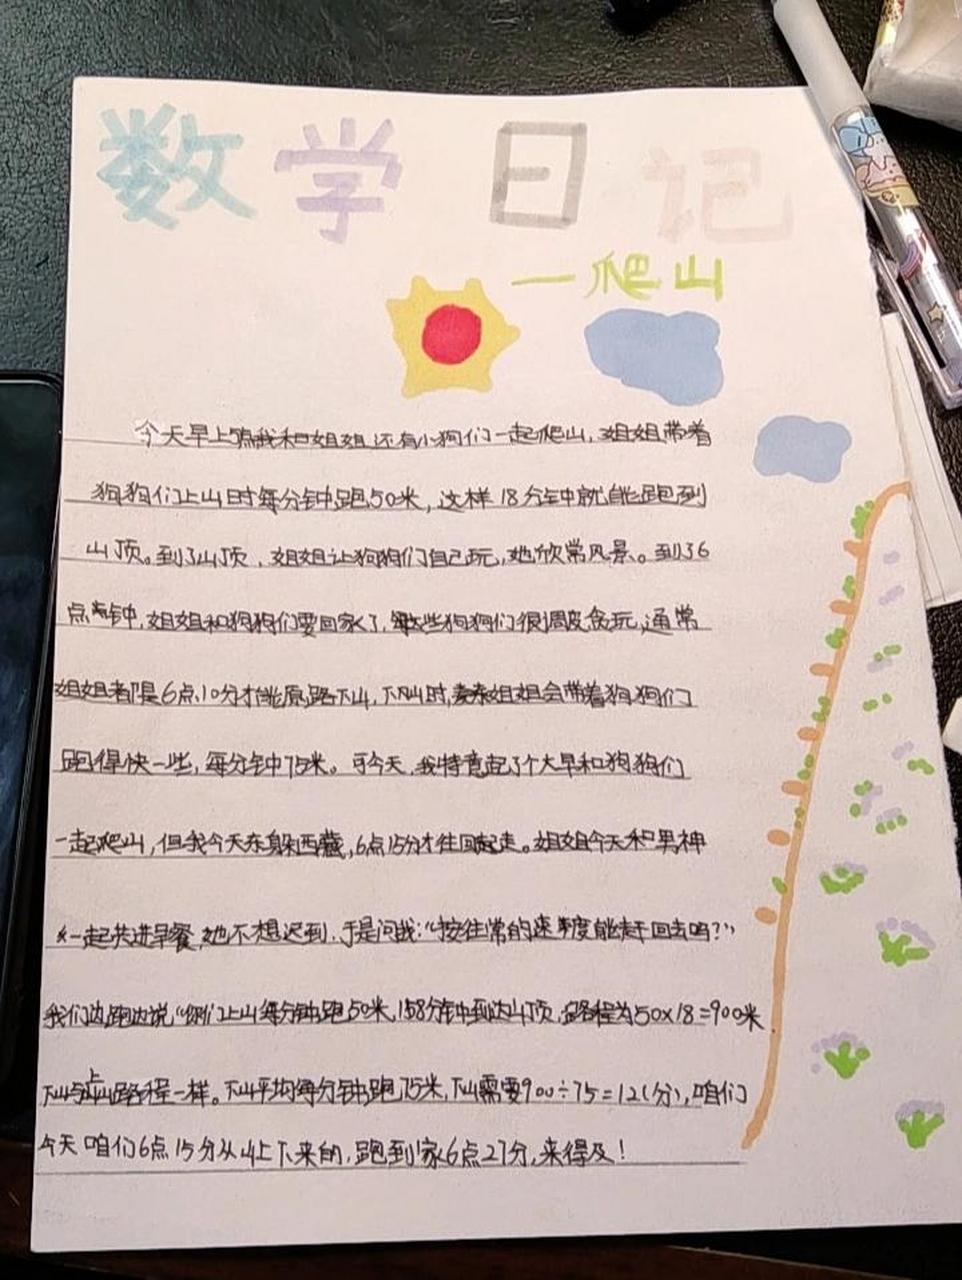 数学日记
—爬山
今天早上我和姐姐还有小狗们一起爬山,姐姐带着
狗狗们上山时每分钟跑50米,这样18分钟就能跑到
山顶。到了山顶,姐姐让狗狗们自己玩,她欣常风景。到了6
点钟,姐姐和狗狗们要回家了,狗狗们很调皮贪玩,通常
姐姐都是6点10分才能原路下山,下山时,姐姐会带着狗狗们
跑得快一些,每分钟75米。可今天,我特意起了个大早和狗狗们
一起爬山,但我今天东躲西藏,6点15分才往回走。姐姐今天和男神
一起共进早餐,她不想迟到,于是问我:“按往常的速度能赶回去吗?”
我们边跑边说“你们上山每分钟跑50米,18分钟到达山顶,路程为50×18=900米
下山与上山路程一样。下山平均每分钟跑75米,下山需要900÷75=12(分),咱们
今天咱们6点15分从山上下来的,跑到家6点27分,来得及!